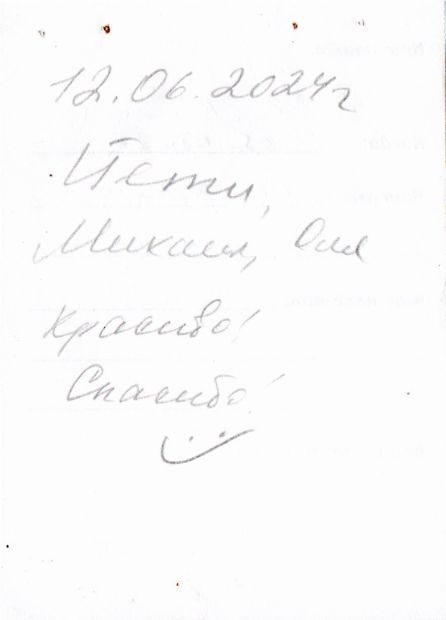 12.06.2024г
Йети,
Михаил, Оля
Красиво!
Спасибо!